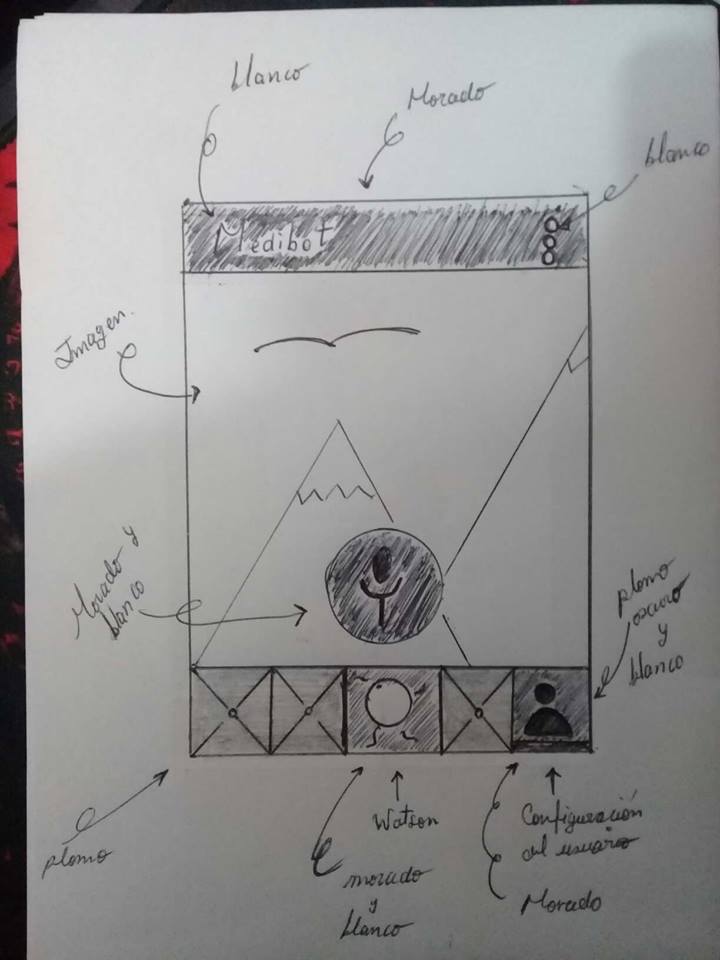 blanco
Morado
blanco
Medibot
Imagen.
Morado y
blanco
plomo
oscuro
y
blanco
plomo
Watson
morado
y
blanco
Configuración
del usuario
Morado